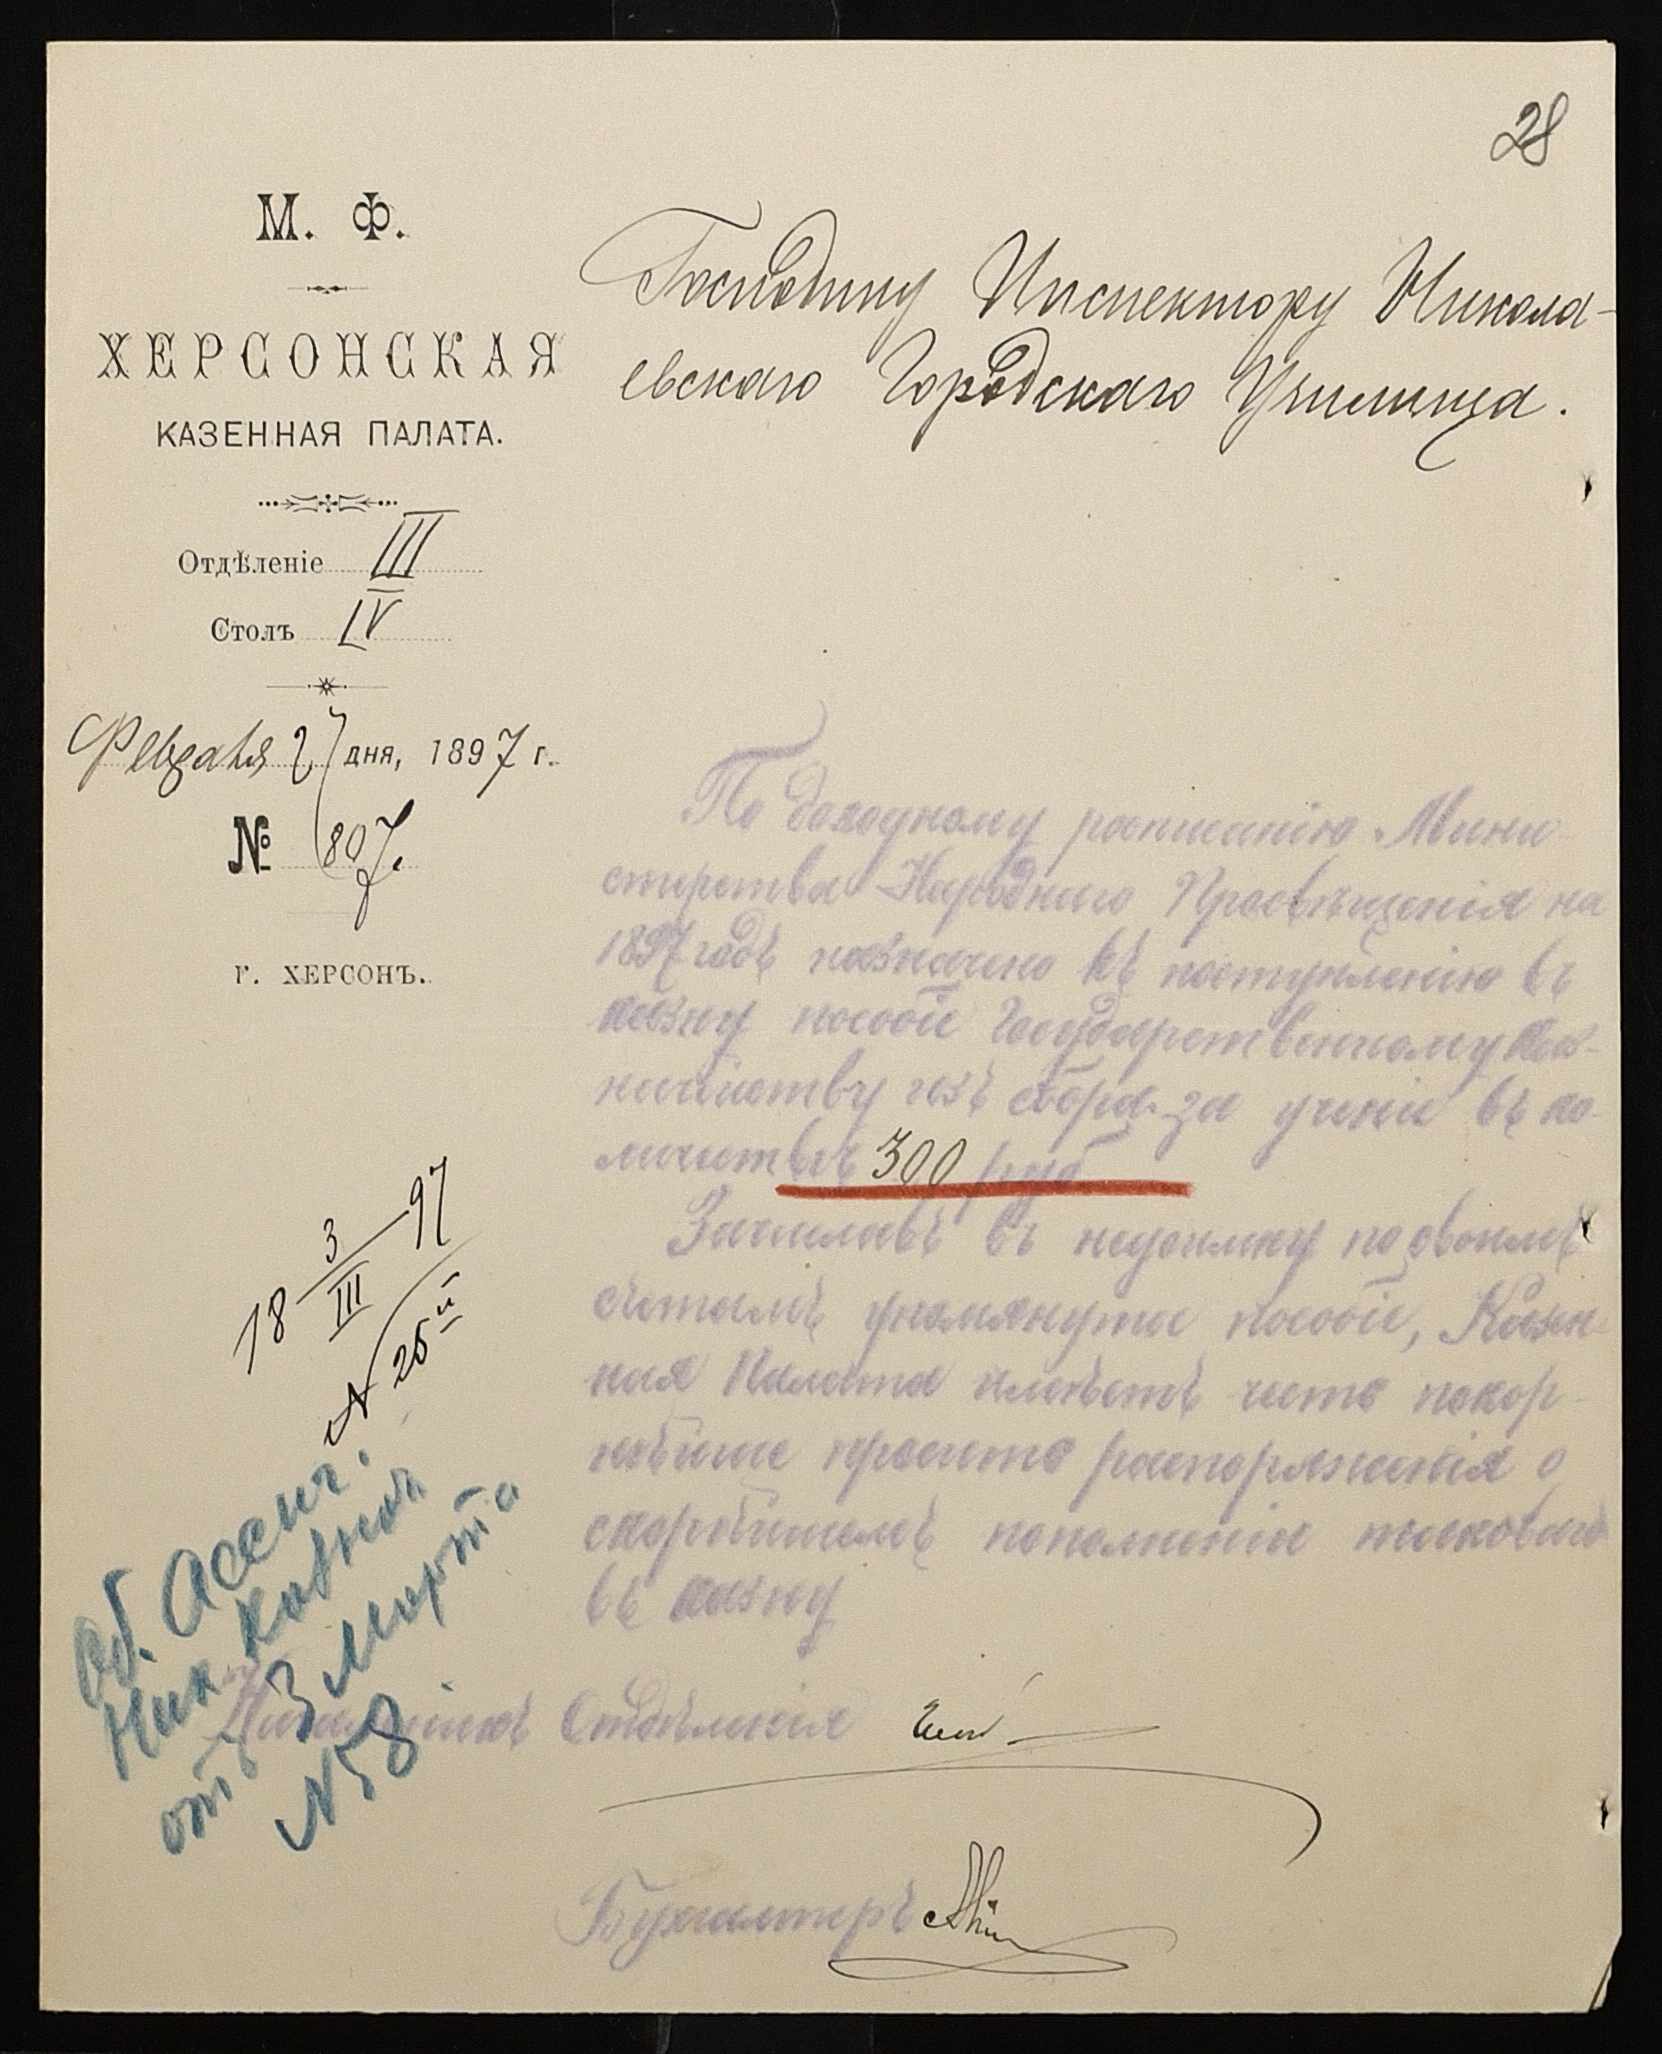 28
М. Ф.
ХЕРСОНСКАЯ
КАЗЕННАЯ ПАЛАТА.
Отдѣленіе III
Столъ IV
Февраля 27 дня, 1897 г.
№ 807.
г. ХЕРСОНЪ.
Господину Инспектору Никола-
евскаго Городскаго Училища.
По доходному росписанію Мини-
стерства Народнаго Просвѣщенія на
1897 годъ назначено къ поступленію въ
казну пособіе Государственному Каз-
начейству изъ сбора за ученіе въ ко-
личествѣ 300 руб
Зачисливъ въ недоимку по своимъ
счетамъ упомянутое пособіе, Казен-
ная Палата имѣетъ честь покор-
нѣйше просить распоряженія о
скорѣйшемъ пополненіи таковаго
въ казну
18 3/III 97
№ 25
Об. Ассиг.
Ник. Казнач.
отъ 3 марта
№ 58
Начальникъ Отдѣленія
Бухгалтеръ